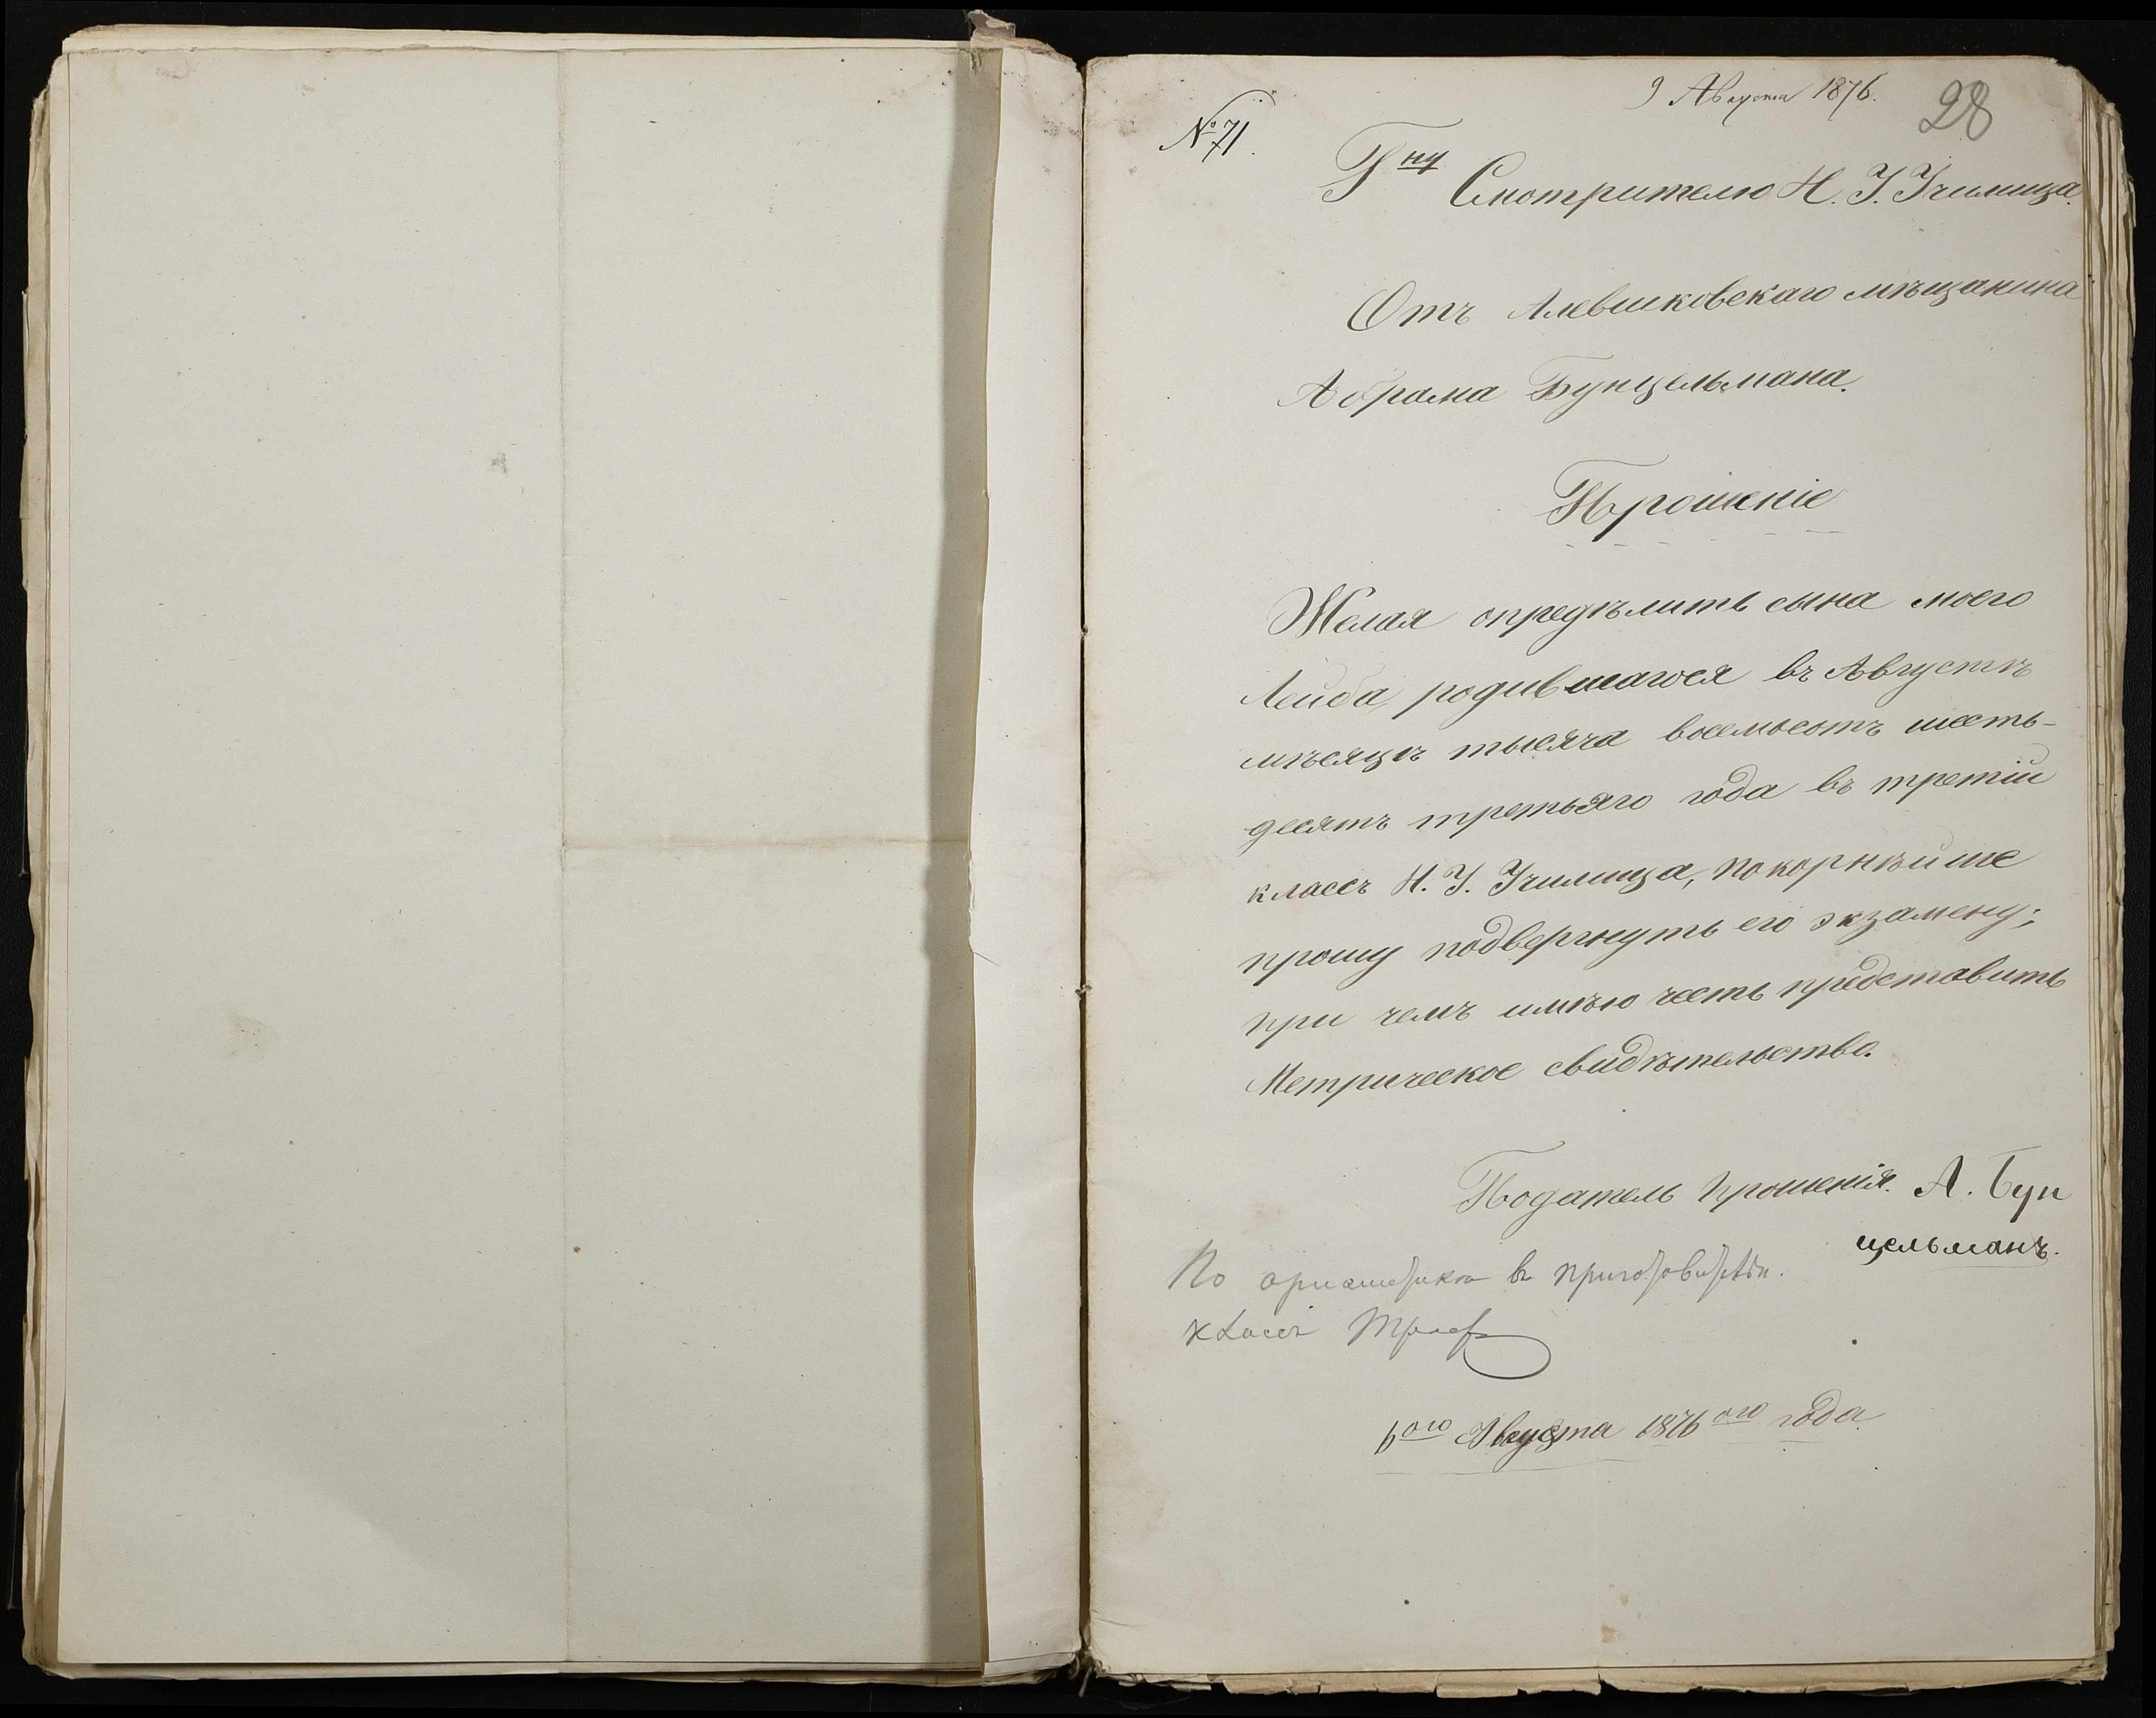 9 Августа 1876.
28
№ 71.
Гну Смотрителю Н. У. Училища.
Отъ Алешковскаго мѣщанина
Абрама Бунцельмана.
Прошеніе
Желая опредѣлить сына моего
Лейба, родившагося въ Августѣ
мѣсяцѣ тысяча восемьсотъ шесть-
десятъ третьяго года въ третій
классъ Н. У. Училища, покорнѣйше
прошу подвергнуть его экзамену;
при чемъ имѣю честь представить
Метрическое свидѣтельство.
Податель прошенія. А. Бун
цельманъ.
По ариѳметикѣ въ приготовительн.
классъ
6ого Августа 1876ого года